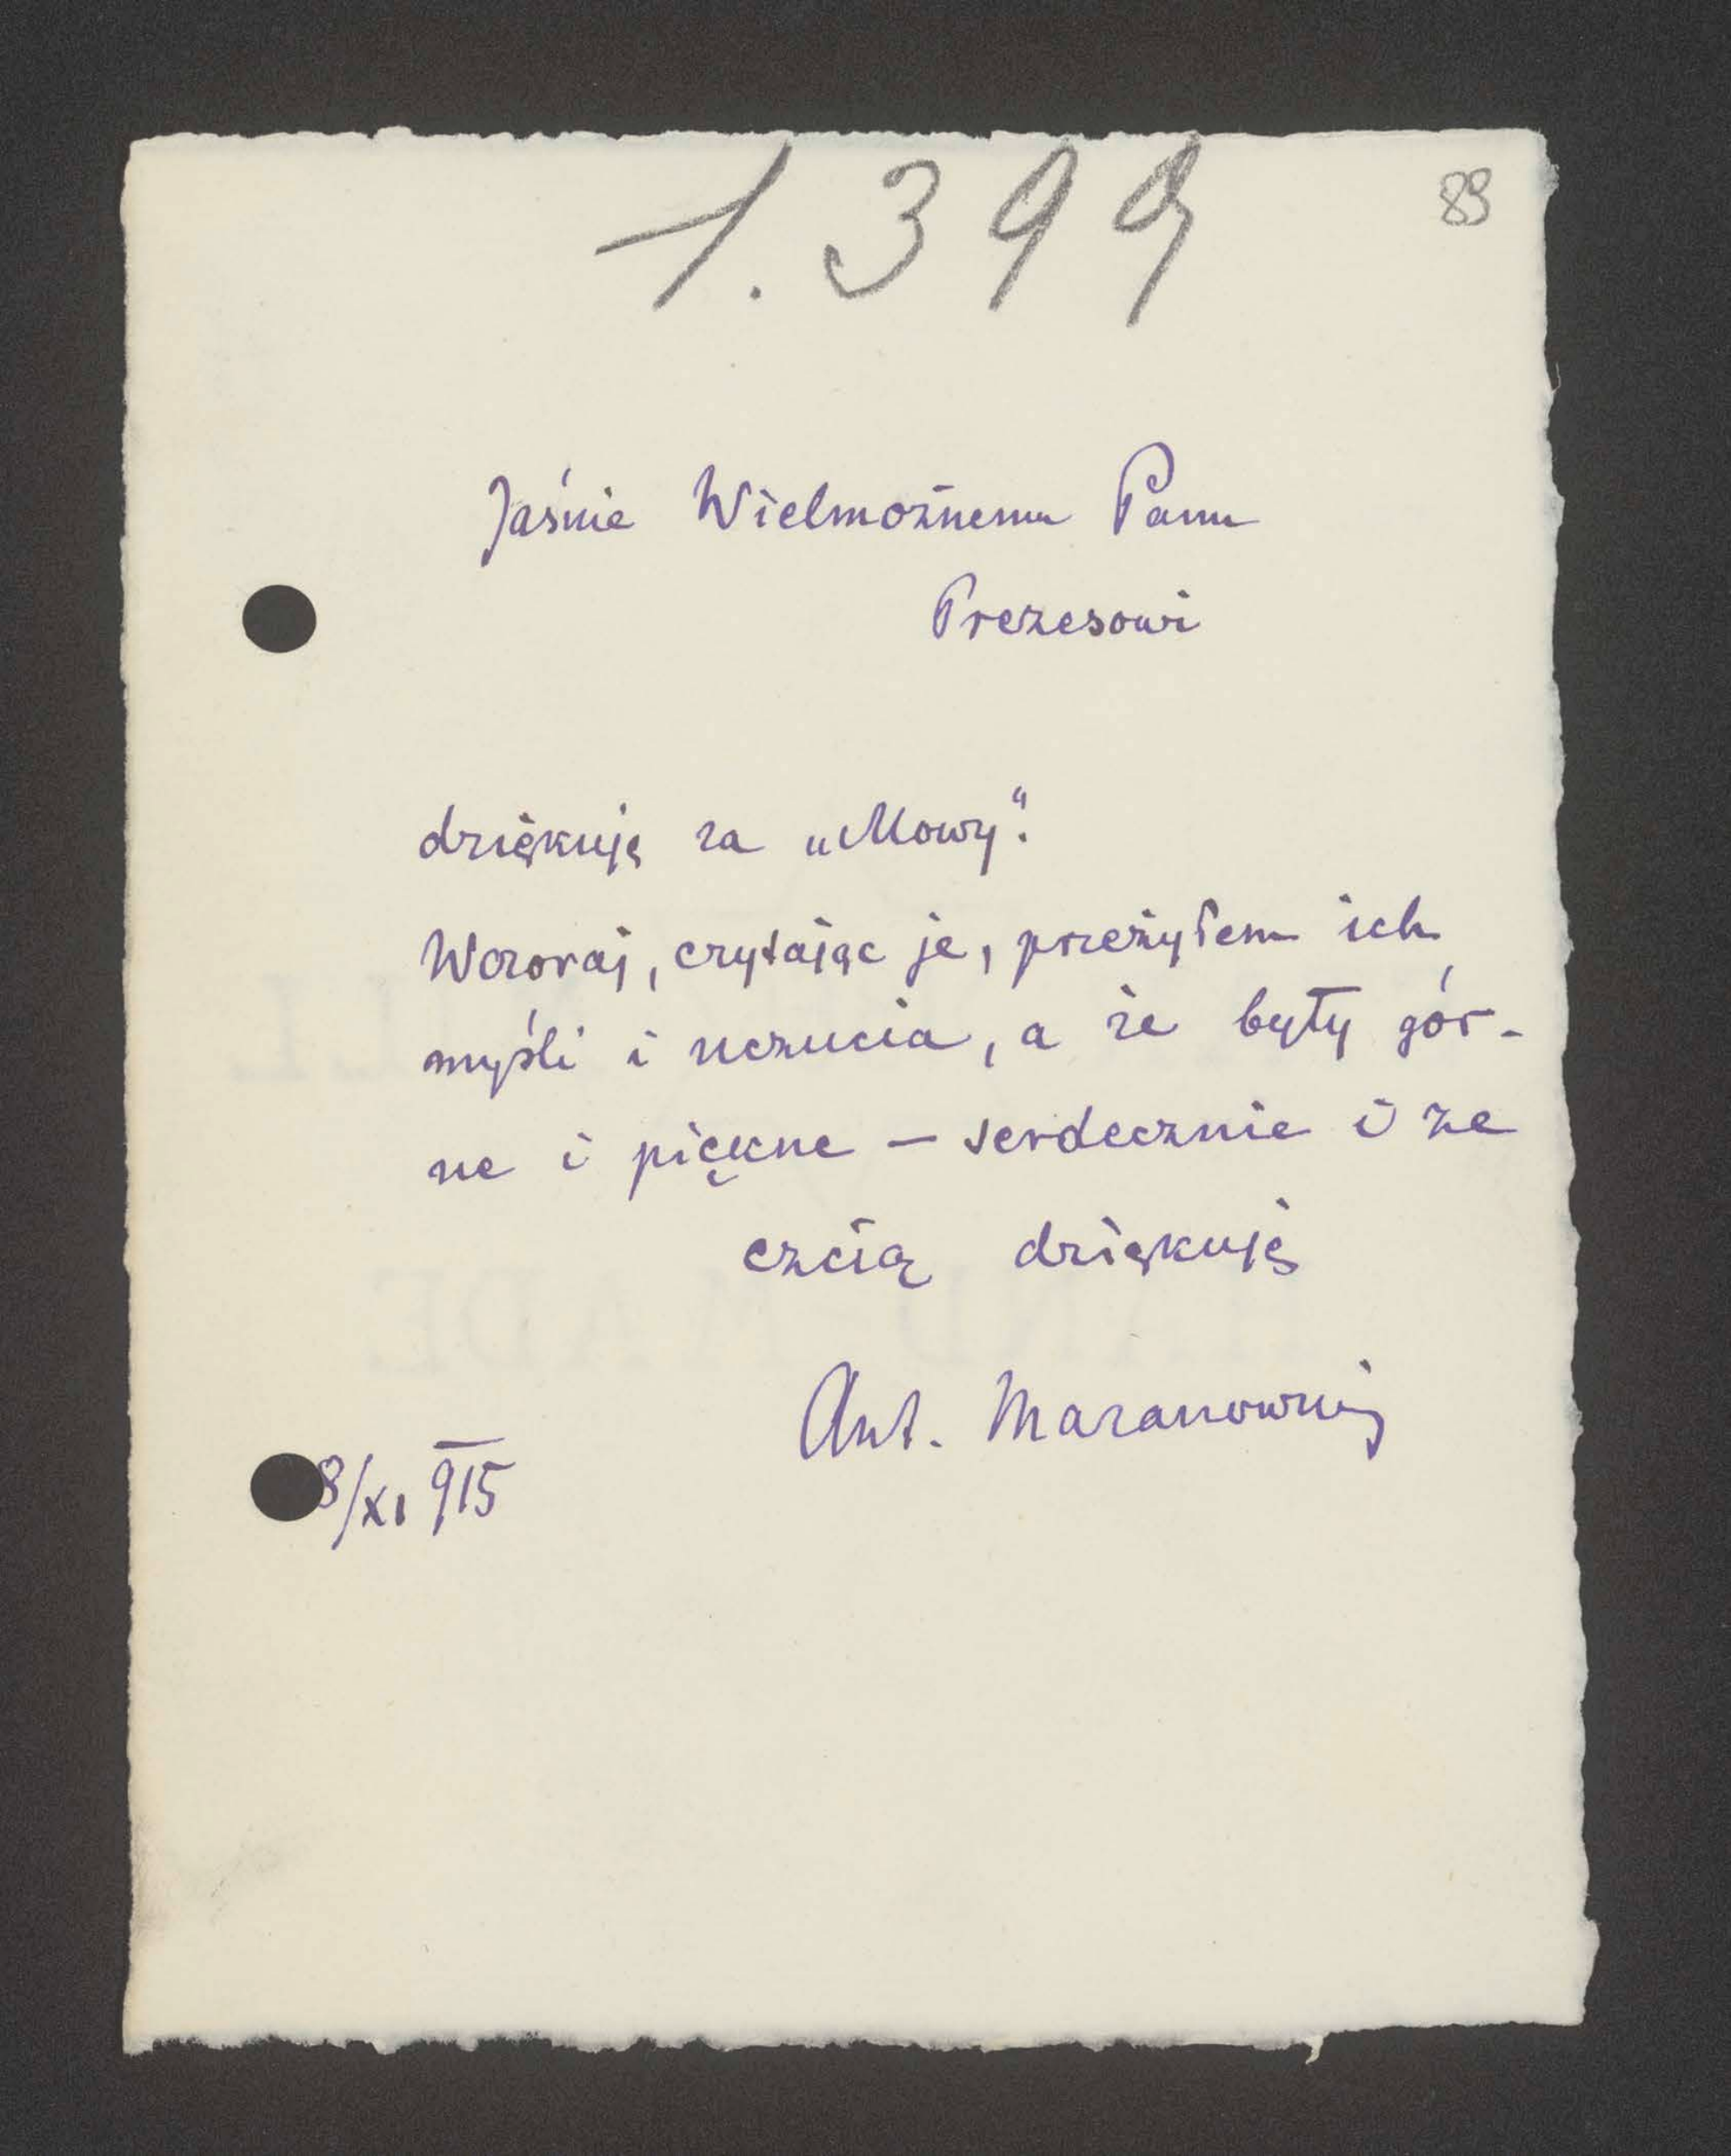 1.399
89
Jaśnie Wielmożnemu Panu
Prezesowi
dziękuję za „Mowy".
Wczoraj, czytając je, przeżyłem ich
myśli i uczucia, a że były gór-
ne i piękne — serdecznie i ze
czcią dziękuję
Ant. Mazanowski
8/XI 915
HAND-MADE